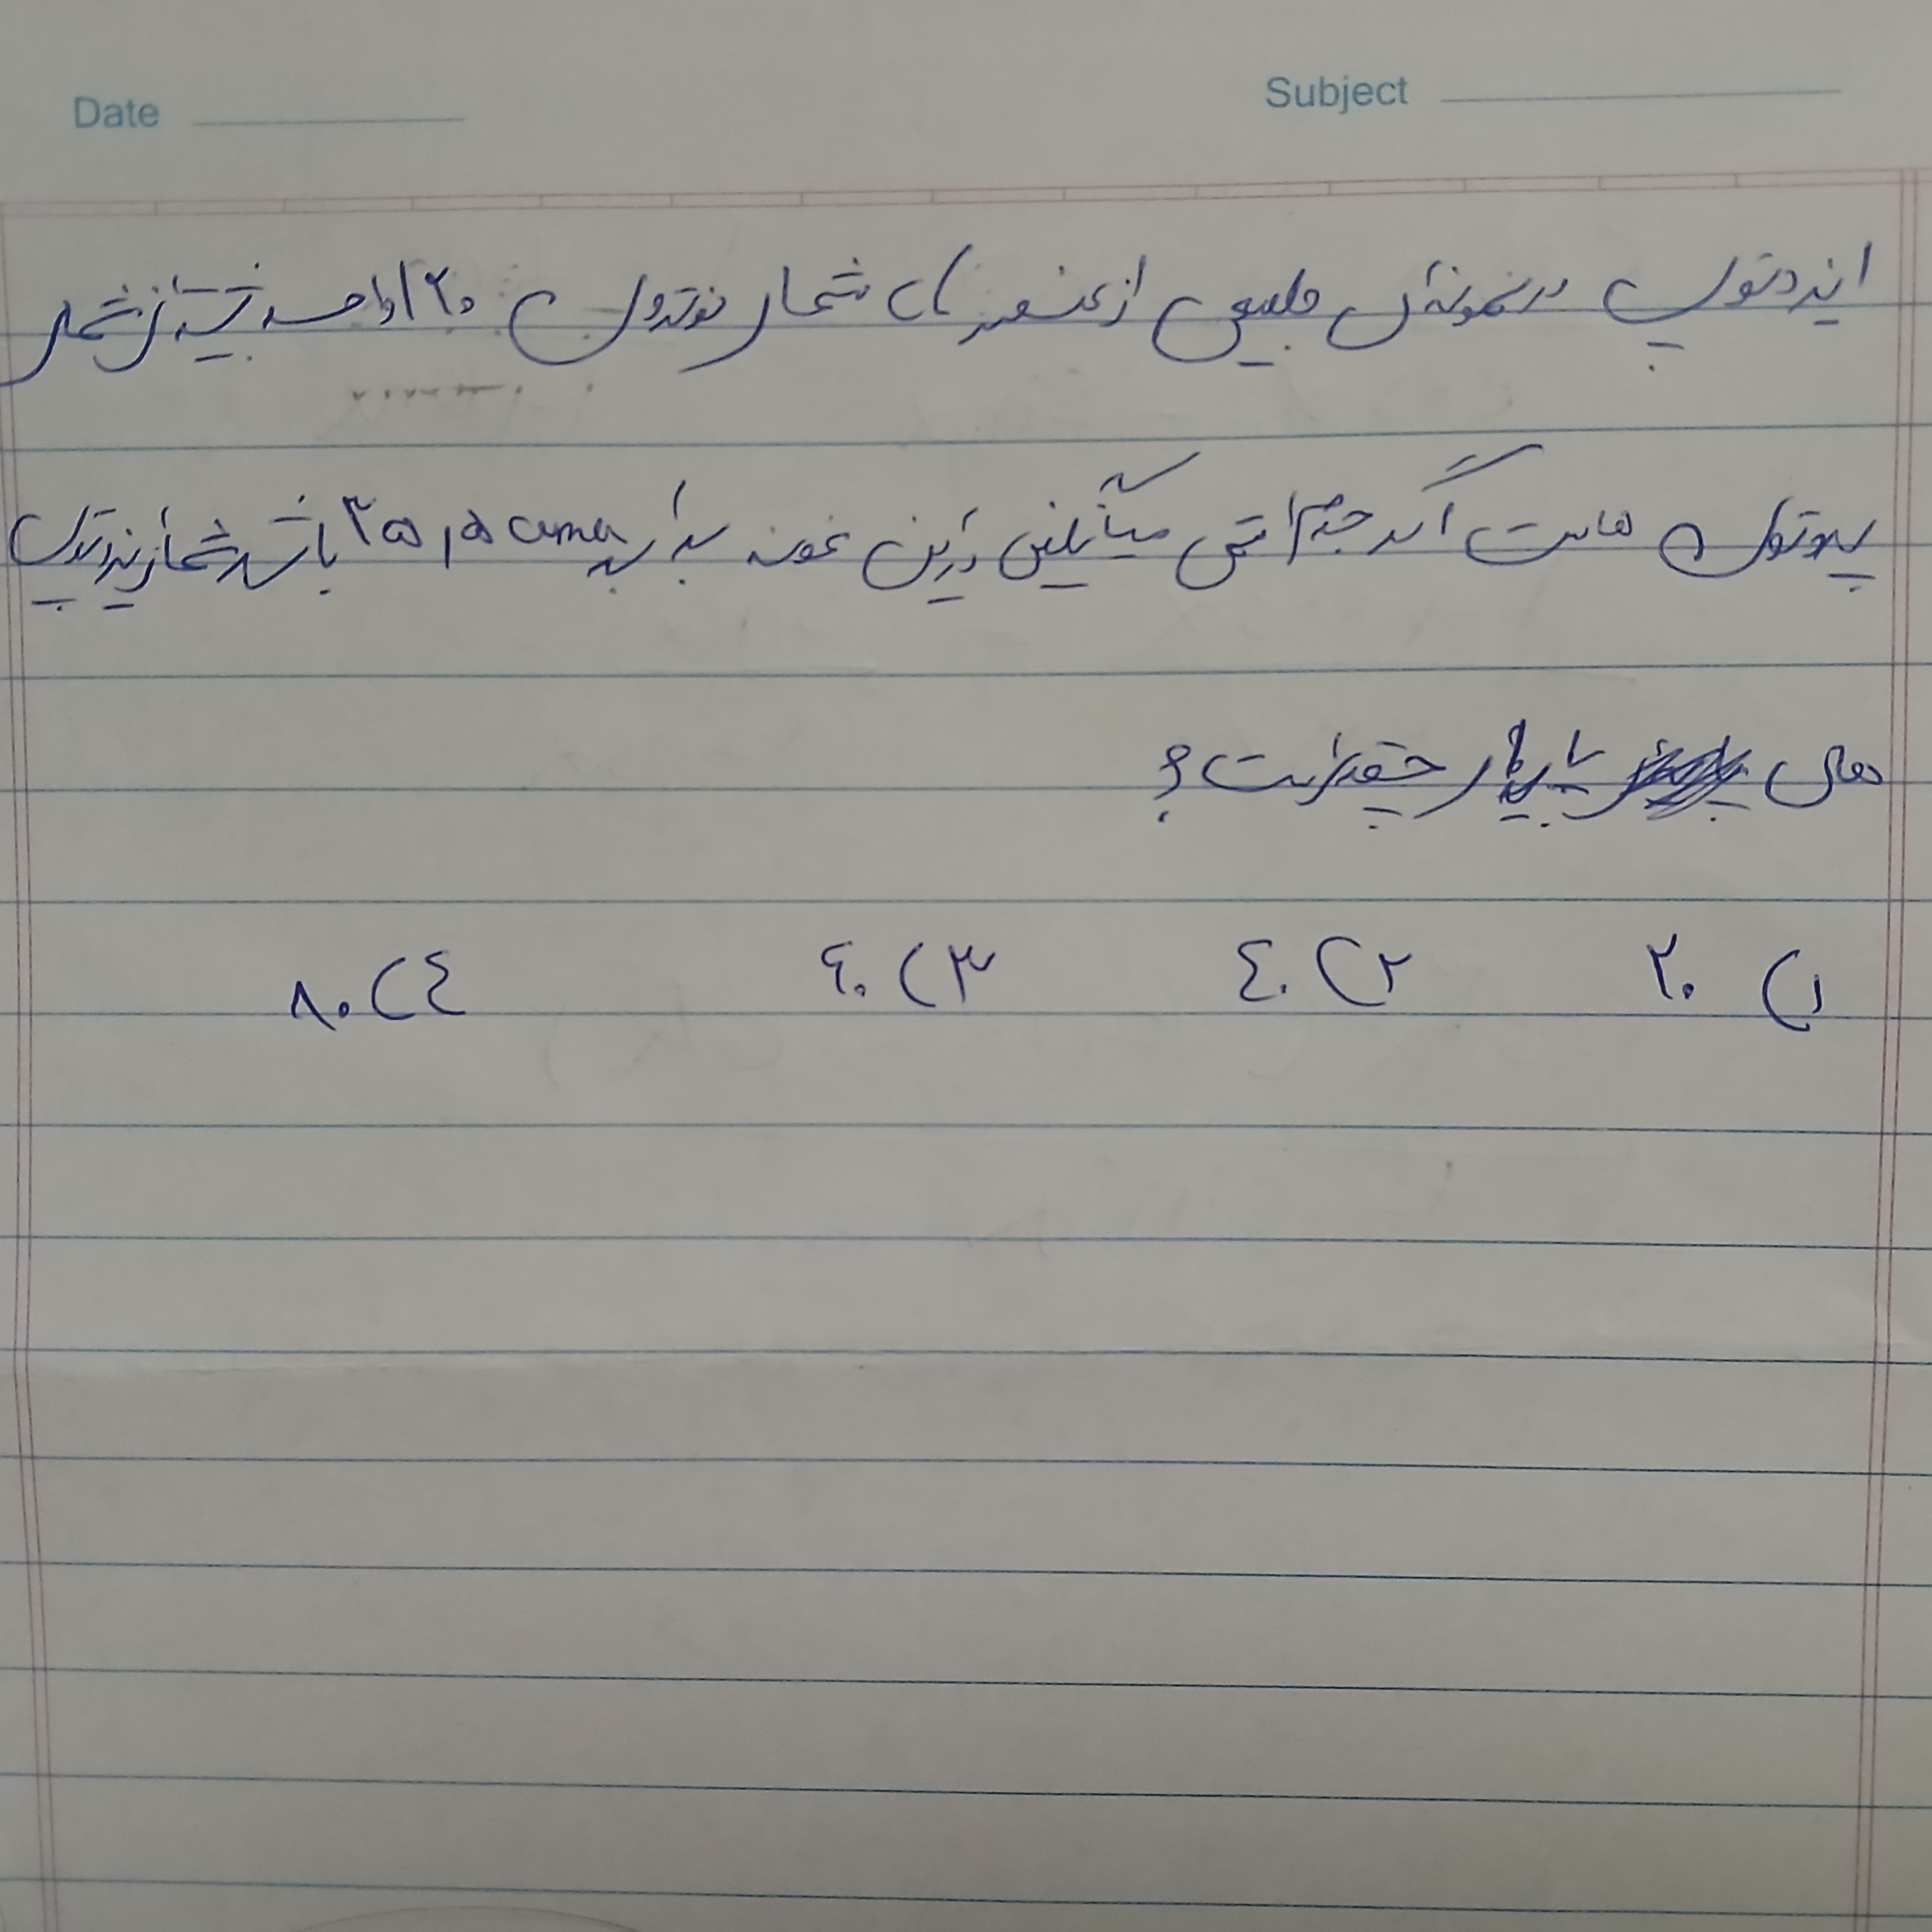 Date Subject
ایزوتوپ در نمونه‌ای طبیعی از عنصر A شمار نوترون ۲۰ واحد بیشتر از شمار
پروتون هاست اگر جرم اتمی میانگین در این نمونه برابر ۳۵٫۵ amu باشد شمار ایزوتوپ
های پایدار چقدر است؟
۱) ۲۰ ۲) ۴۰ ۳) ۶۰ ۴) ۸۰